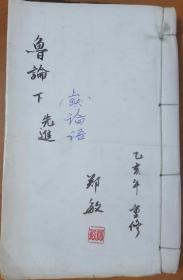 魯論 下 先進
論语
郑敏
乙亥年 重修